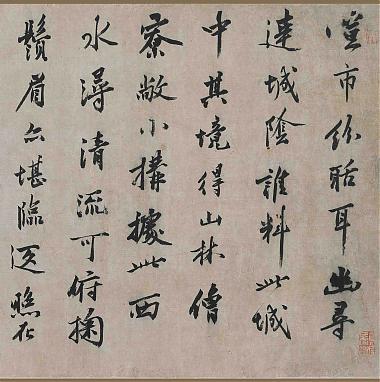 喧市紛聒耳幽尋
達城陰誰料此城
中其境得山林僧
寮敞小構據此西
水潯清流可俯掬
鬚眉亦堪臨返照在